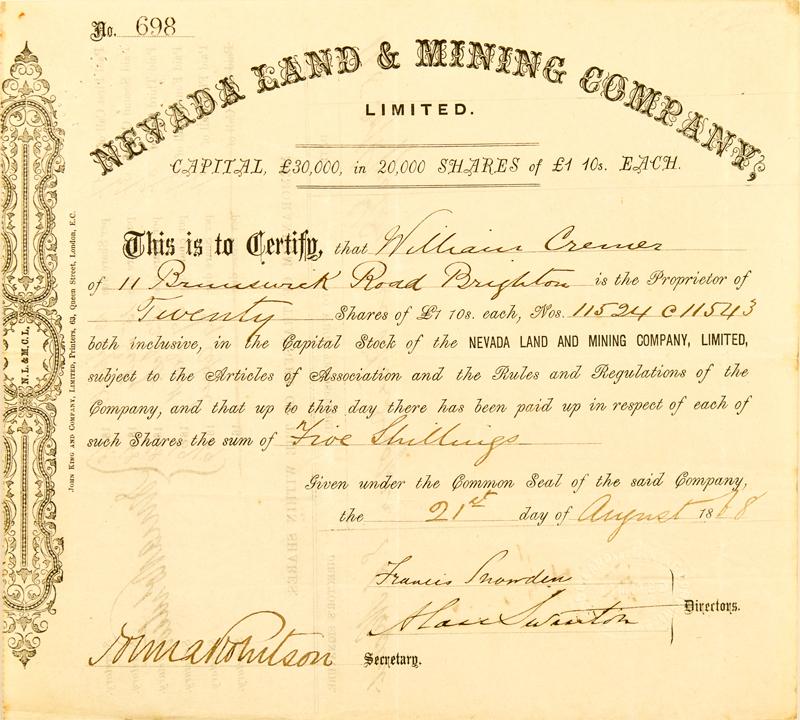 No. 698
NEVADA LAND & MINING COMPANY,
LIMITED.
CAPITAL, £30,000, in 20,000 SHARES of £1 10s. EACH.
This is to Certify, that William Cremer
of 11 Brunswick Road Brighton is the Proprietor of
Twenty Shares of £1 10s. each, Nos. 11524 @ 11543
both inclusive, in the Capital Stock of the NEVADA LAND AND MINING COMPANY, LIMITED,
subject to the Articles of Association and the Rules and Regulations of the
Company, and that up to this day there has been paid up in respect of each of
such Shares the sum of Five Shillings
Given under the Common Seal of the said Company,
the 21st day of August 1868
Francis Snowden
Swanton
Directors.
Robertson
Secretary.
N.L.& M.C.L.
JOHN KING AND COMPANY, LIMITED, Printers, 63, Queen Street, London, E.C.